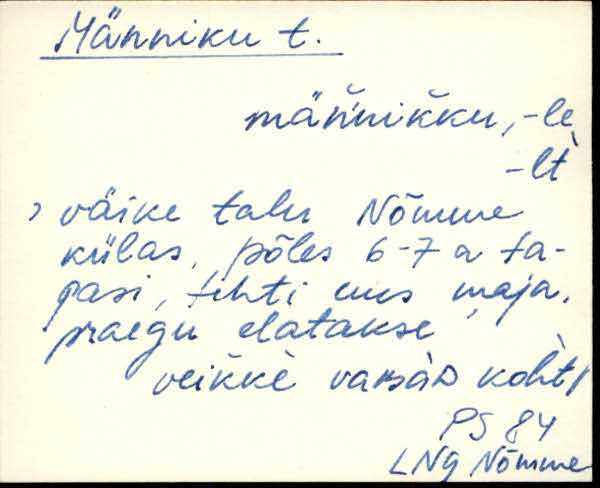 Männiku t.
männikku, -le
-lt
väike talu Nõmme
külas, põles 6-7 a ta-
gasi, tehti uus maja,
praegu elatakse
veikkè koht
PS 84
LNg Nõmme